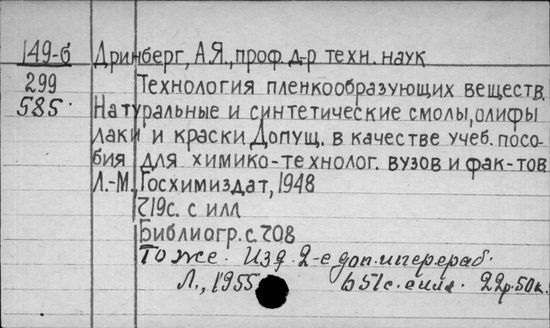 149-б Дринберг, А.Я., проф. д-р техн. наук
299 Технология пленкообразующих веществ.
585. Натуральные и синтетические смолы, олифы
лаки и краски. Допущ. в качестве учеб. посо-
бия для химико-технолог. вузов и фак-тов
Л.-М., Госхимиздат, 1948
719с. с илл
Библиогр. с. 708
То же. Изд. 2-е доп. и перераб.
Л., 1955 651с. с илл. 22р.50к.